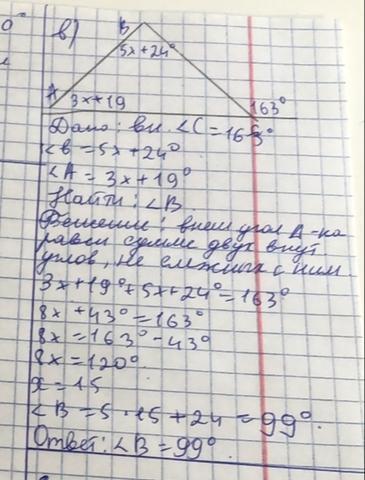 в)
B
5x+24°
A
3x+19
163°
Дано: вн. ∠C = 163°
∠B = 5x+24°
∠A = 3x+19°
Найти: ∠B.
Решение: внеш угол Δ-ка
равен сумме двух внут.
углов, не смежных с ним.
3x+19°+5x+24°=163°
8x+43°=163°
8x=163°-43°
8x=120°.
x=15
∠B=5·15+24=99°.
Ответ: ∠B=99°.